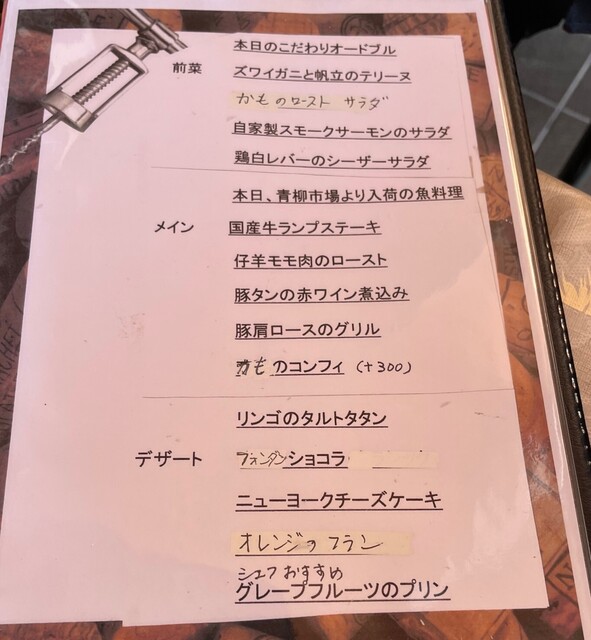 本日のこだわりオードブル
前菜 ズワイガニと帆立のテリーヌ
かものロースト サラダ
自家製スモークサーモンのサラダ
鶏白レバーのシーザーサラダ
本日、青柳市場より入荷の魚料理
メイン 国産牛ランプステーキ
仔羊モモ肉のロースト
豚タンの赤ワイン煮込み
豚肩ロースのグリル
かものコンフィ (+300)
リンゴのタルトタタン
デザート フォンダンショコラ
ニューヨークチーズケーキ
オレンジのフラン
シェフおすすめ
グレープフルーツのプリン